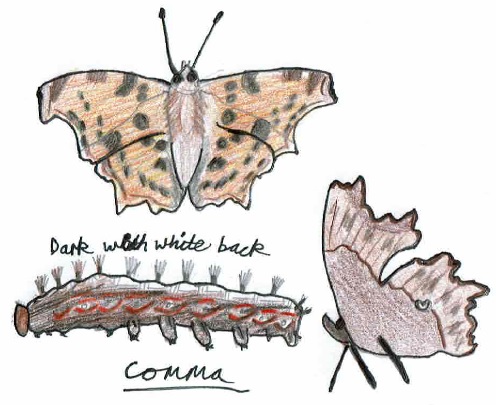 Dark with white back
Comma